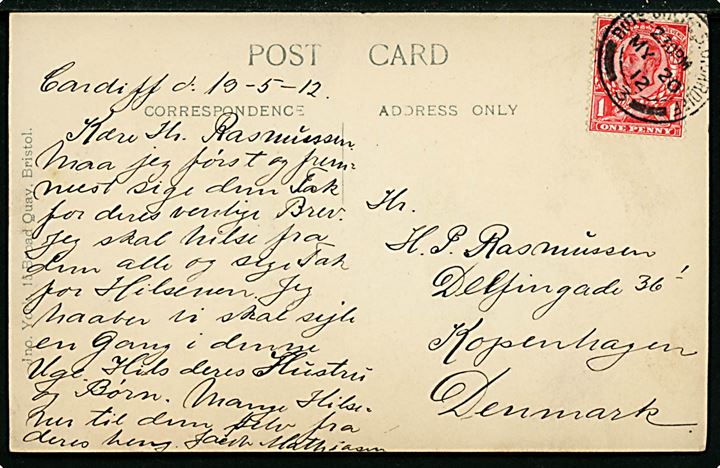 POST CARD
Cardiff d. 19-5-12.
CORRESPONDENCE
Kære Hr. Rasmussen
Maa jeg först og frem-
mest sige dem Tak
for deres venlige Brev.
jeg skal hilse fra
dem alle og sige Tak
for Hilsenen. Jeg
haaber vi skal sejle
en Gang i denne
Uge. Hils deres Hustru
og Børn. Mange Hilse-
ner til dem selv fra
deres heng. Jacob Mathiasen
ADDRESS ONLY
Hr.
H. P. Rasmussen
Delfingade 36 1
Kopenhagen
Denmark.
Bristol.
15 Broad Quay,
2.30PM
MY 20
12
3
1 1
ONE PENNY